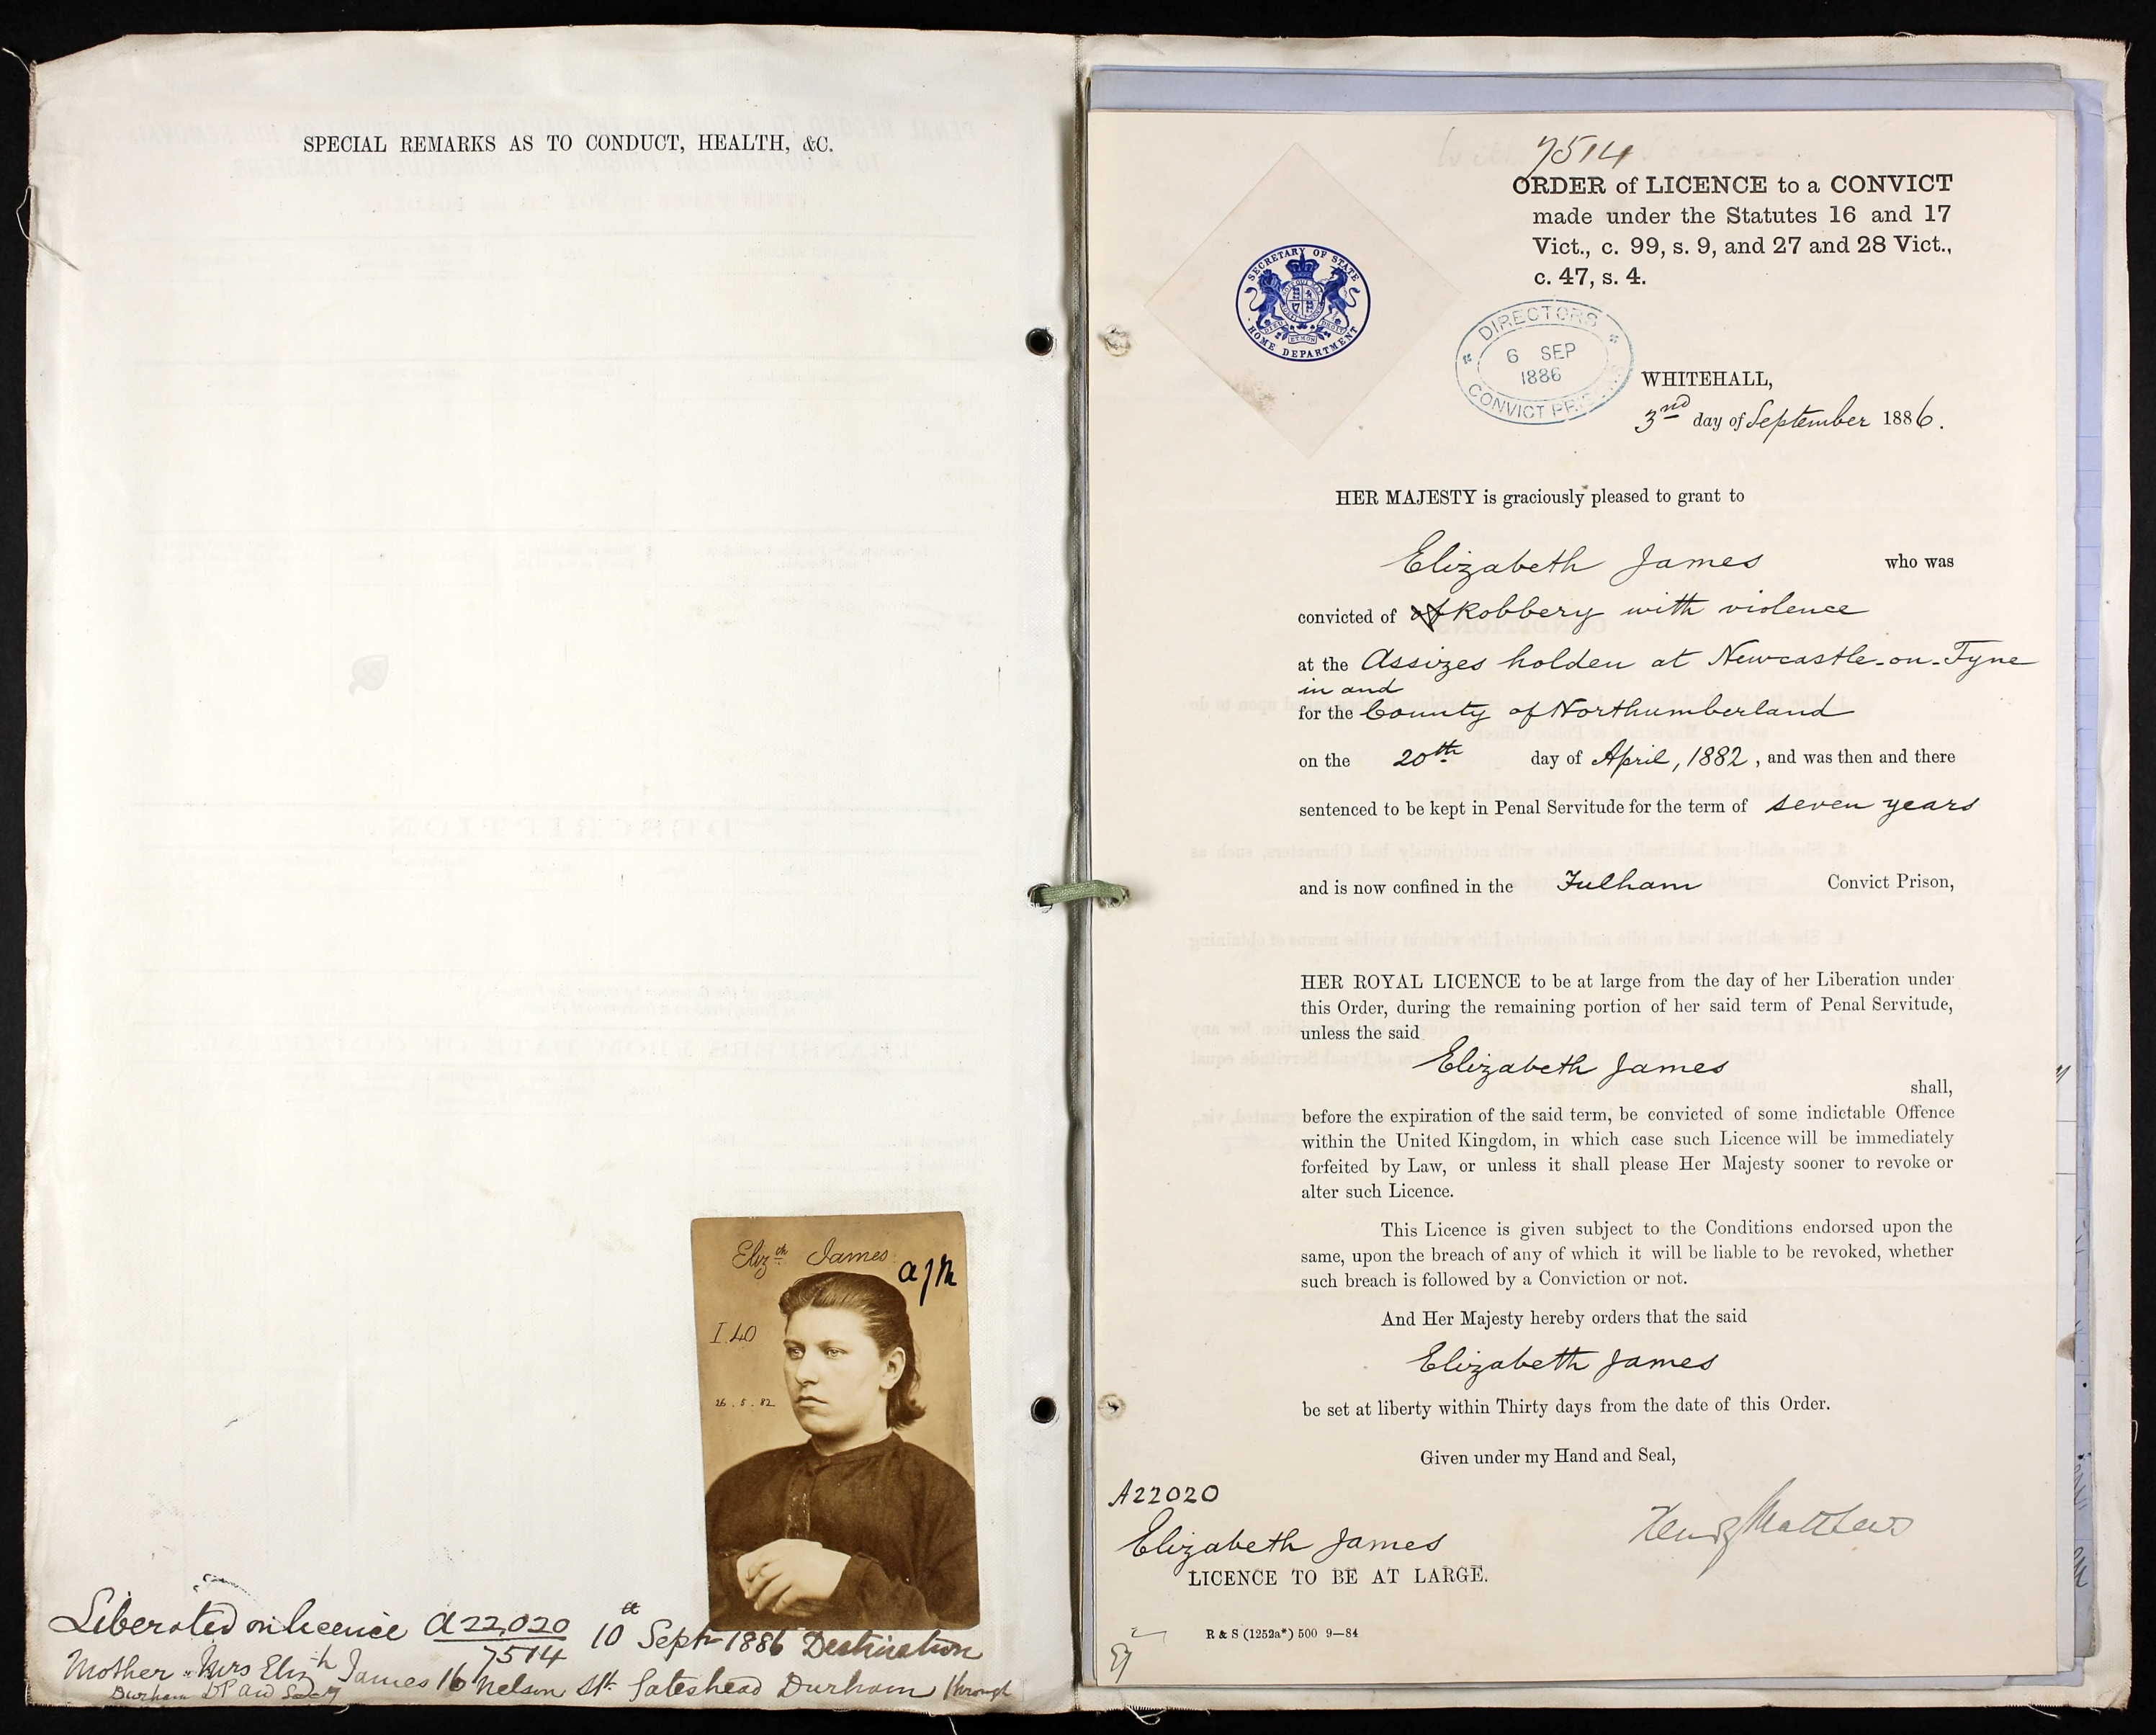 SPECIAL REMARKS AS TO CONDUCT, HEALTH, &C.
Eliz.th James
I.40
26.5.82
Liberated on licence A22,020 10th Sept 1886 Destination
7514
Mother Mrs Elizth James 16 Nelson St. Gateshead Durham through
Durham DP Aid
7514
ORDER of LICENCE to a CONVICT
made under the Statutes 16 and 17
Vict., c. 99, s. 9, and 27 and 28 Vict.,
c. 47, s. 4.
SECRETARY OF STATE
HOME DEPARTMENT
DIRECTORS
6 SEP
1886
CONVICT PRISONS
WHITEHALL,
3nd day of September 1886.
HER MAJESTY is graciously pleased to grant to
Elizabeth James who was
convicted of of Robbery with violence
at the Assizes holden at Newcastle-on-Tyne
in and
for the County of Northumberland
on the 20th day of April, 1882, and was then and there
sentenced to be kept in Penal Servitude for the term of seven years
and is now confined in the Fulham Convict Prison,
HER ROYAL LICENCE to be at large from the day of her Liberation under
this Order, during the remaining portion of her said term of Penal Servitude,
unless the said
Elizabeth James
shall,
before the expiration of the said term, be convicted of some indictable Offence
within the United Kingdom, in which case such Licence will be immediately
forfeited by Law, or unless it shall please Her Majesty sooner to revoke or
alter such Licence.
This Licence is given subject to the Conditions endorsed upon the
same, upon the breach of any of which it will be liable to be revoked, whether
such breach is followed by a Conviction or not.
And Her Majesty hereby orders that the said
Elizabeth James
be set at liberty within Thirty days from the date of this Order.
Given under my Hand and Seal,
A22020
Henry Matthews
Elizabeth James
LICENCE TO BE AT LARGE.
R & S (1252a*) 500 9—84